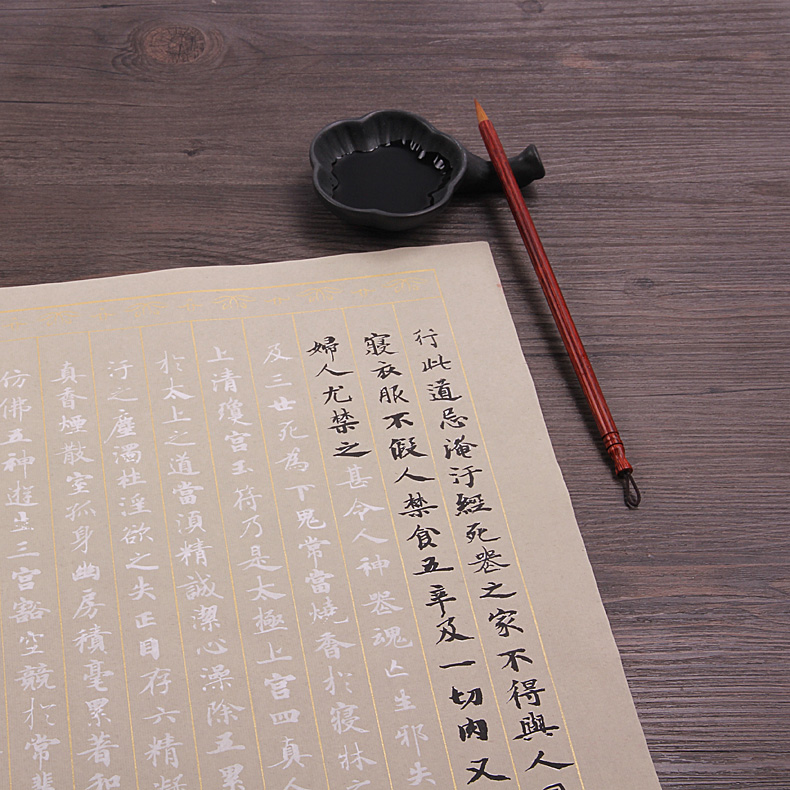 行此道忌淹汙經死喪之家不得與人
寢衣服不假人禁食五辛及一切肉又
婦人尤禁之甚令人神喪魂亡生邪失
及三世死為下鬼常當燒香於寢牀之
上清瓊宮玉符乃是太極上宮四真人
於太上之道當須精誠潔心澡除五累
汙之塵濁杜淫欲之失正目存六精凝
真香煙散室孤身幽房積毫累著和
仿佛五神遊生三宮豁空競於常輩